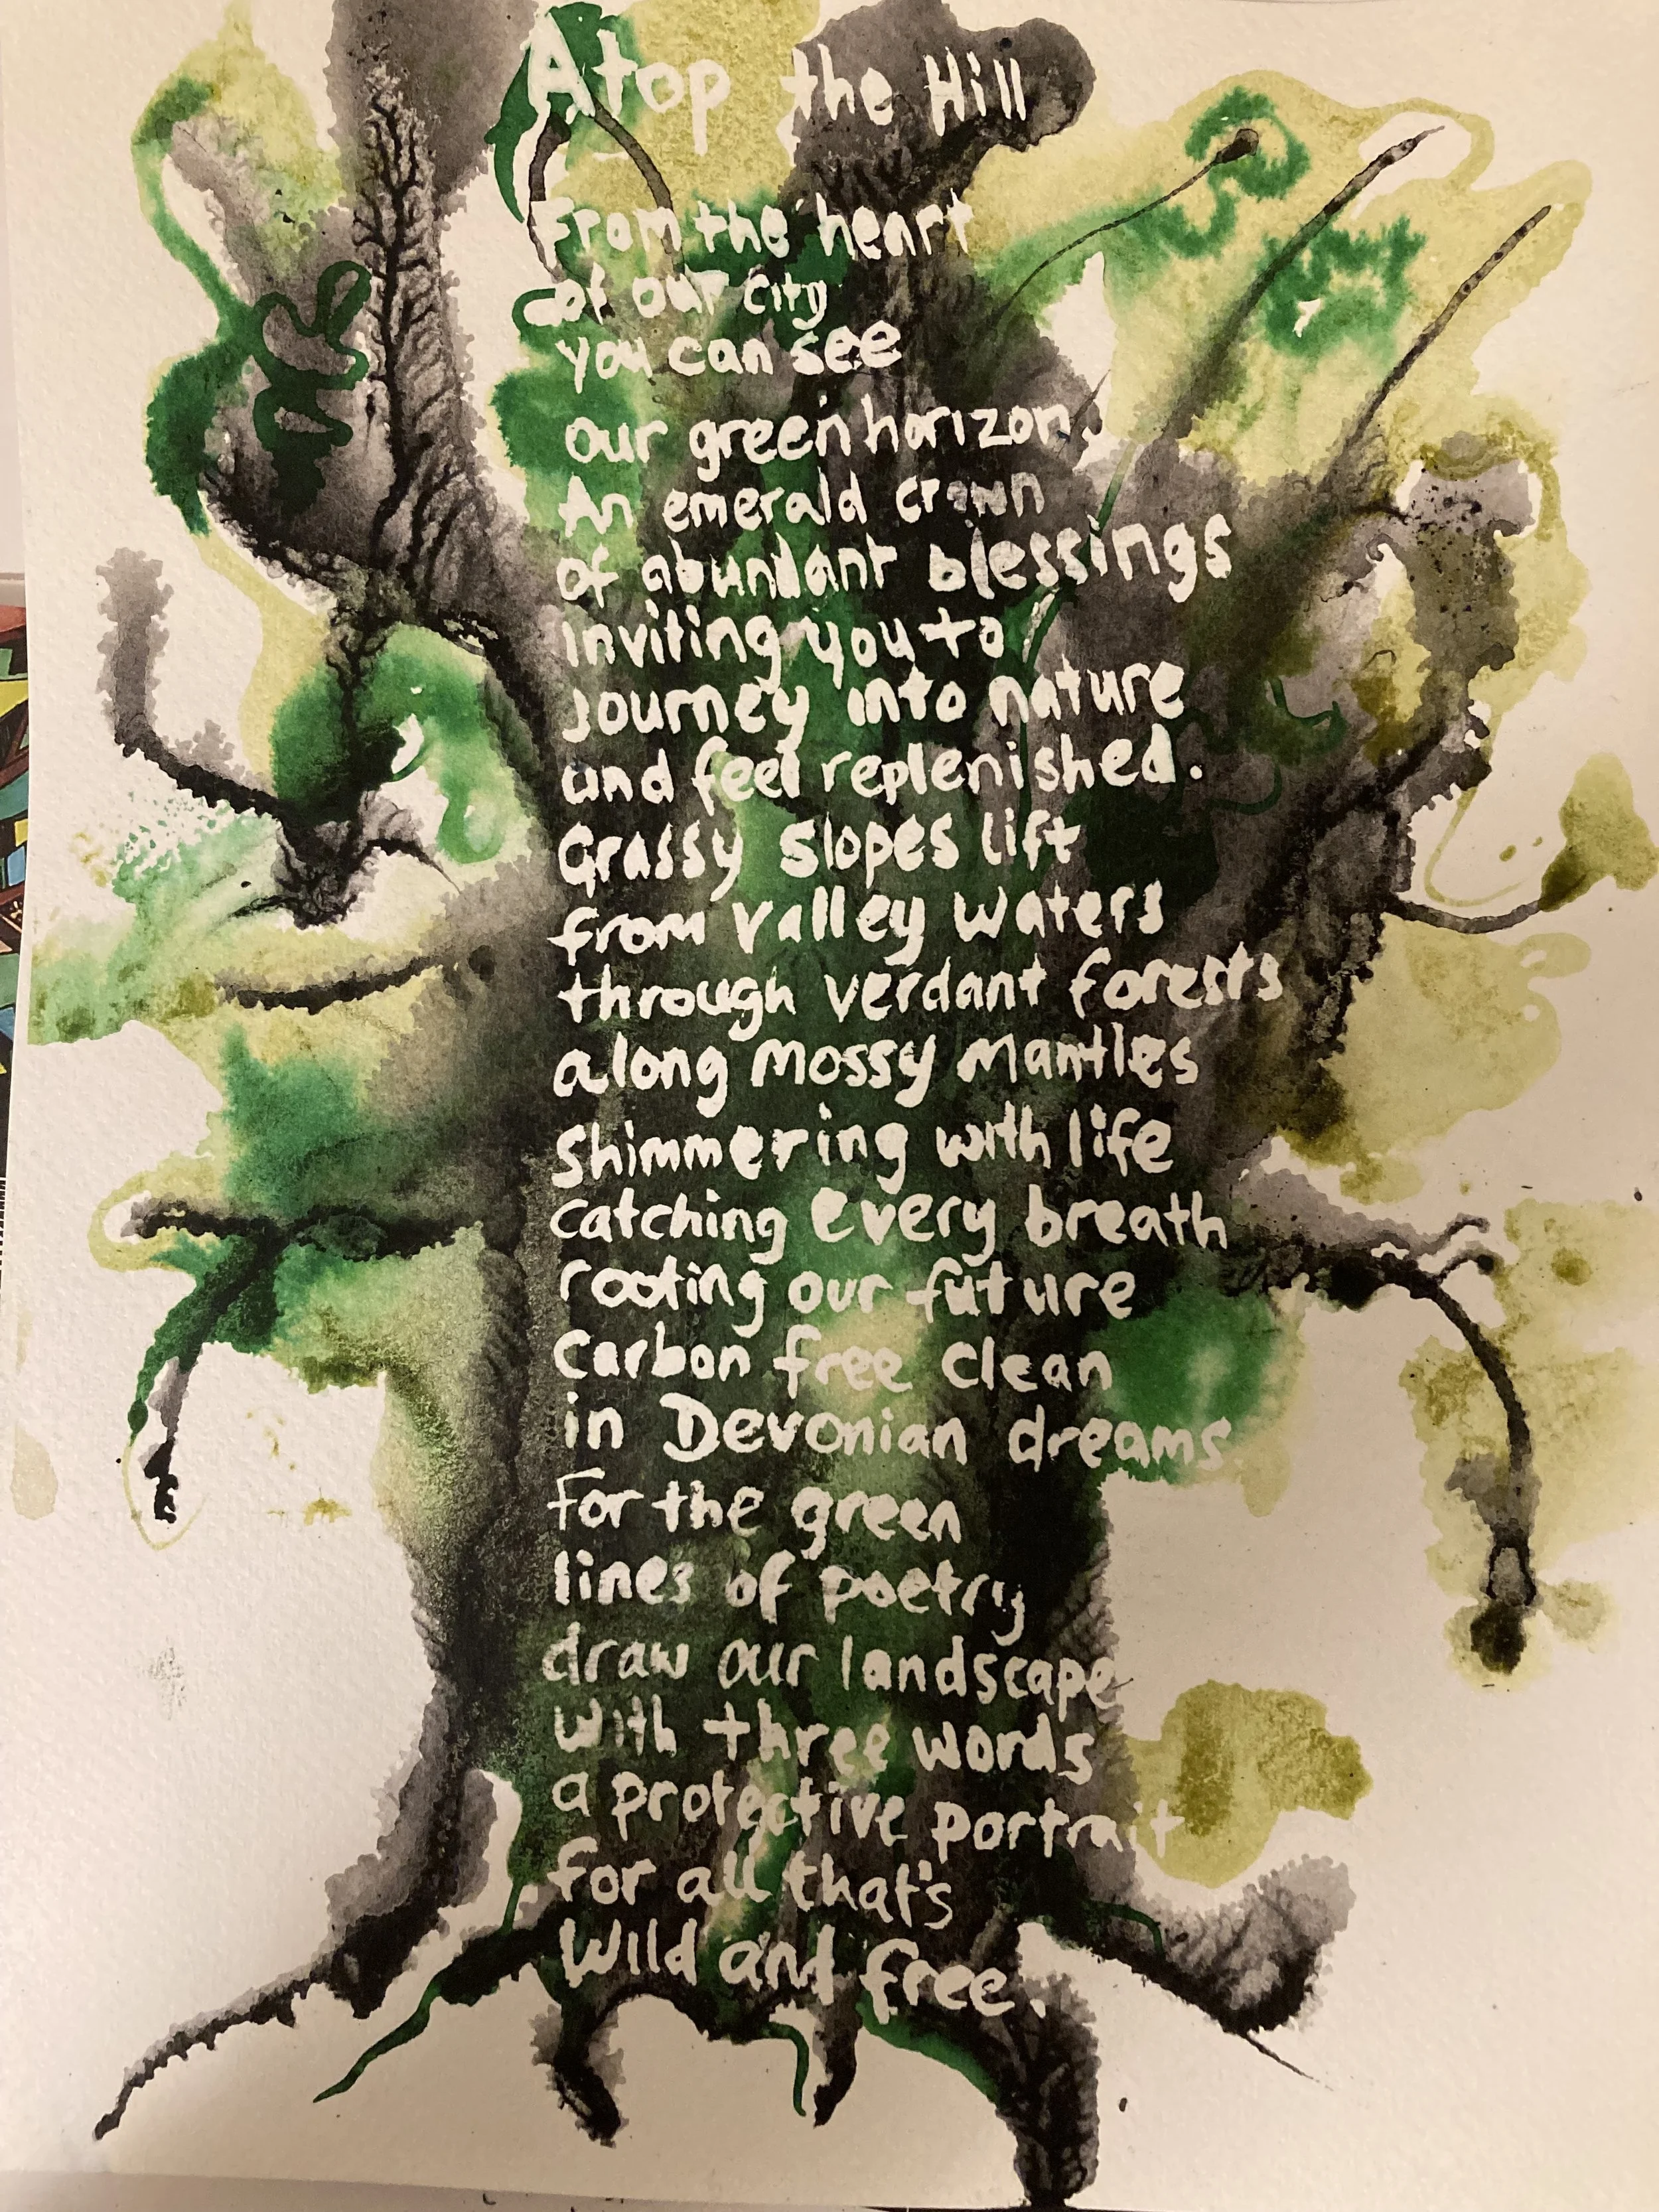 Atop the Hill
From the heart
of our city
you can see
our green horizon,
An emerald crown
of abundant blessings
inviting you to
journey into nature
and feel replenished.
Grassy slopes lift
from valley waters
through verdant forests
along mossy mantles
shimmering with life
catching every breath
rooting our future
carbon free clean
in Devonian dreams
For the green
lines of poetry
draw our landscape
with three words
a protective portrait
for all that's
Wild and free.